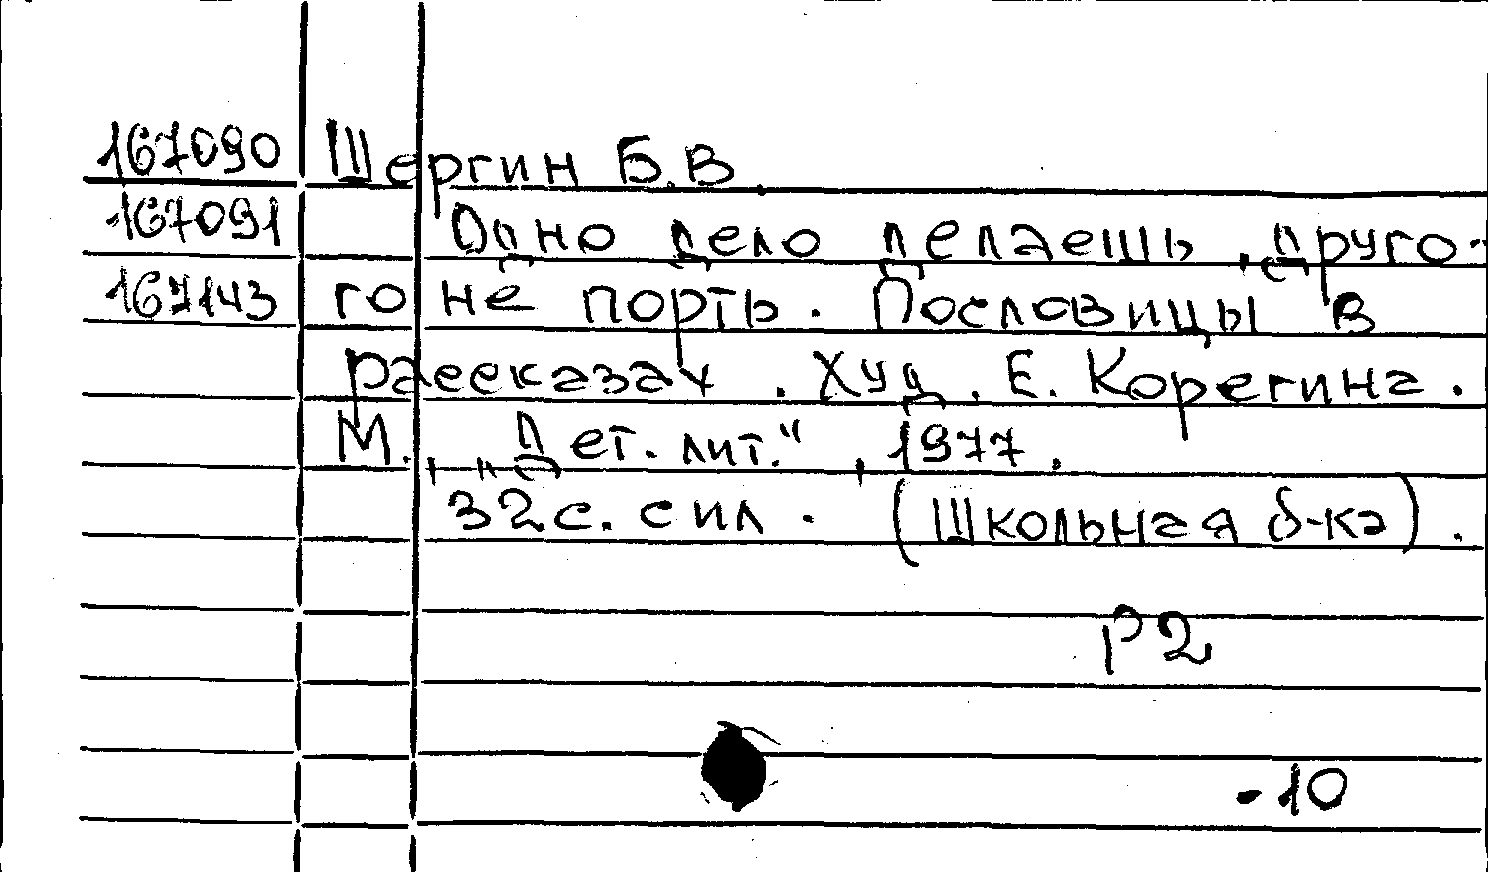 167090 Шергин Б.В.
167091 Одно дело делаешь, друго-
167143 го не порть. Пословицы в
рассказах. Худ. Е. Корегина.
М., „Дет. лит.“, 1977.
32 с. с ил. (Школьная б-ка).
Р2
-10